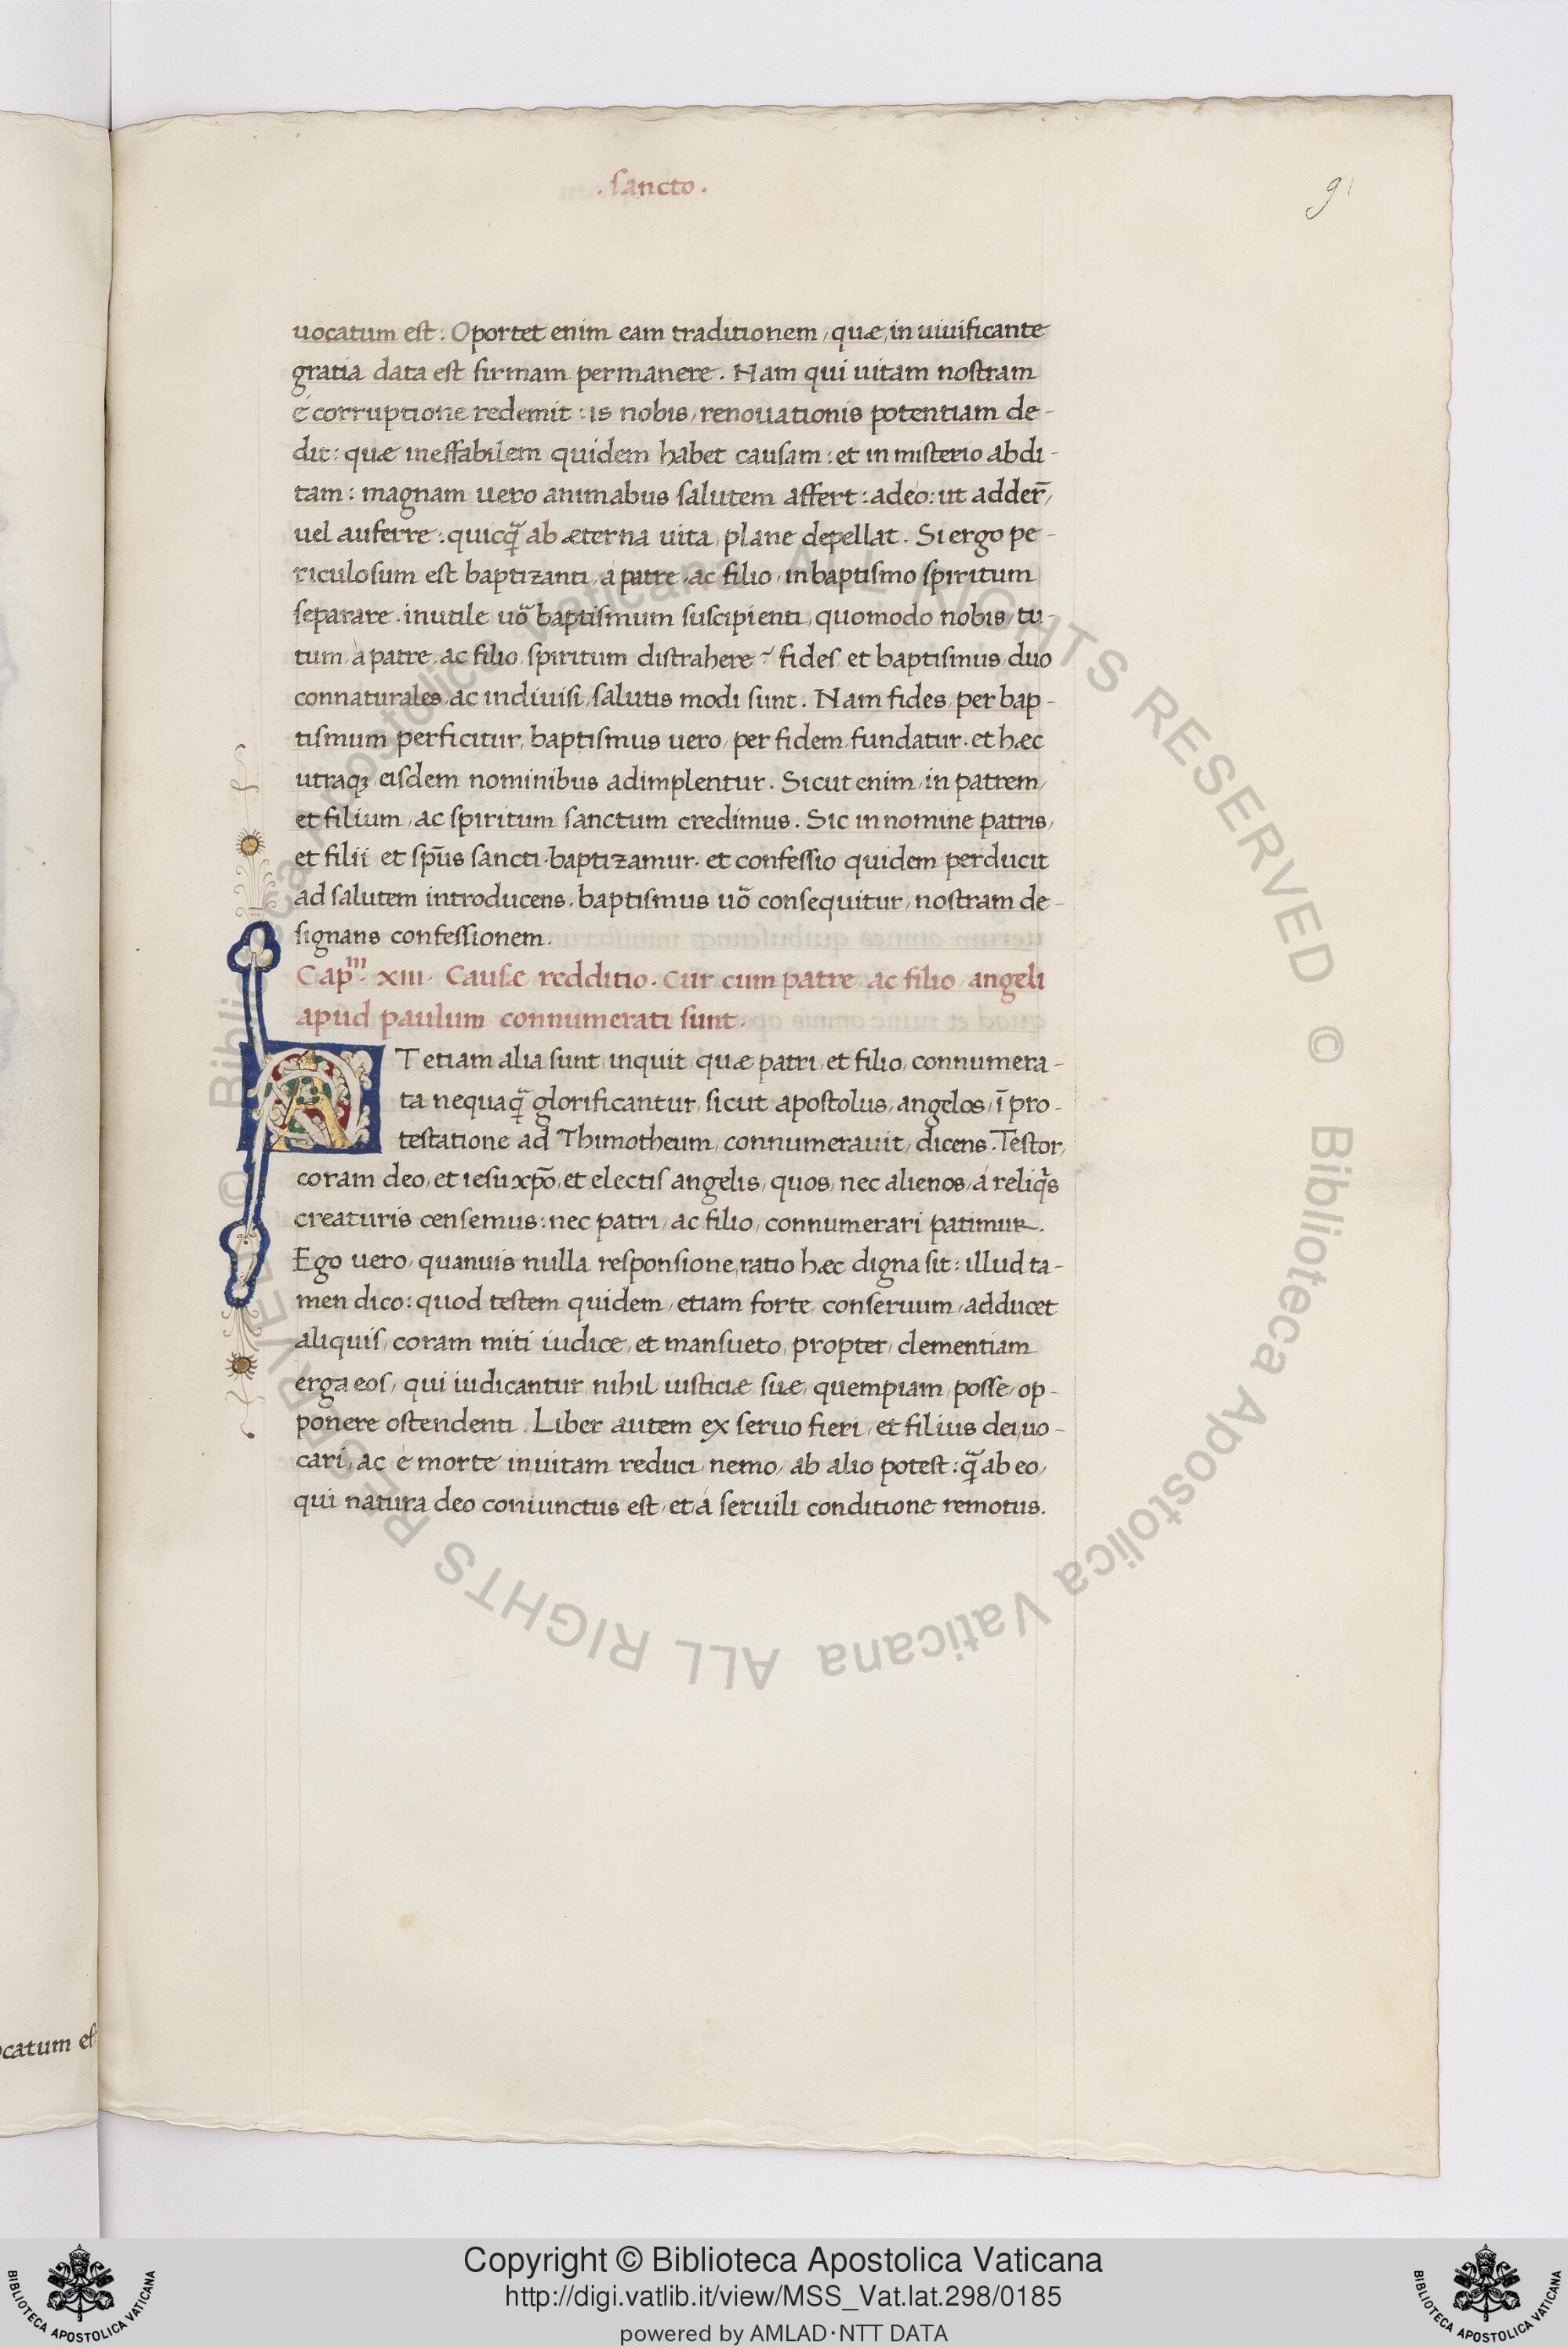 . sancto .
91
uocatum est : Oportet enim eam traditionem, quæ, in uiuificante
gratia data est firmam permanere . Nam qui uitam nostram
é corruptione redemit : is nobis, renouationis potentiam de-
dit : quæ ineffabilem quidem habet causam : et in misterio abdi-
tam : magnam uero animabus salutem affert : adeo : ut adder̄,
uel auferre : quicq̃ ab æterna uita, plane depellat . Si ergo pe-
riculosum est baptizanti, a patre, ac filio, in baptismo spiritum
separare . inutile uõ baptismum suscipienti, quomodo nobis, tu-
tum, à patre, ac filio, spiritum distrahere ? fides et baptismus, duo
connaturales, ac indiuisi, salutis modi sunt . Nam fides, per bap-
tismum perficitur, baptismus uero, per fidem, fundatur . et hæc
utraqꝫ eisdem nominibus adimplentur . Sicut enim, in patrem,
et filium, ac spiritum sanctum credimus . Sic in nomine patris,
et filii et sp̄us sancti . baptizamur . et confessio quidem perducit
ad salutem introducens, baptismus uõ consequitur, nostram de-
signans confessionem .
Cap.ᵐ XIII . Causæ redditio . Cur, cum patre, ac filio, angeli
apud paulum connumerati sunt .
AT etiam alia sunt, inquit, quæ patri, et filio, connumera-
ta nequaq̃ glorificantur, sicut apostolus, angelos, ĩ pro-
testatione ad Thimotheum, connumerauit, dicens . Testor,
coram deo, et iesu xp̄o, et electis angelis, quos, nec alienos, á reliq̓s
creaturis censemus : nec patri, ac filio, connumerari patimur .
Ego uero, quanuis nulla responsione, ratio hæc digna sit : illud ta-
men dico : quod testem quidem, etiam forte, conseruum, adducet
aliquis, coram miti iudice, et mansueto, propter, clementiam
erga eos, qui iudicantur, nihil iusticiæ suæ, quempiam, posse, op-
ponere ostendenti . Liber autem ex seruo fieri, et filius dei, uo-
cari, ac é morte in uitam reduci, nemo, ab alio potest : q̃ ab eo,
qui natura deo coniunctus est, et á seruili conditione remotus .
ocatum est
© Biblioteca Apostolica Vaticana ALL RIGHTS RESERVED
© Biblioteca Apostolica Vaticana ALL RIGHTS RESERVED
BIBLIOTECA APOSTOLICA VATICANA
Copyright © Biblioteca Apostolica Vaticana
http://digi.vatlib.it/view/MSS_Vat.lat.298/0185
powered by AMLAD·NTT DATA
BIBLIOTECA APOSTOLICA VATICANA